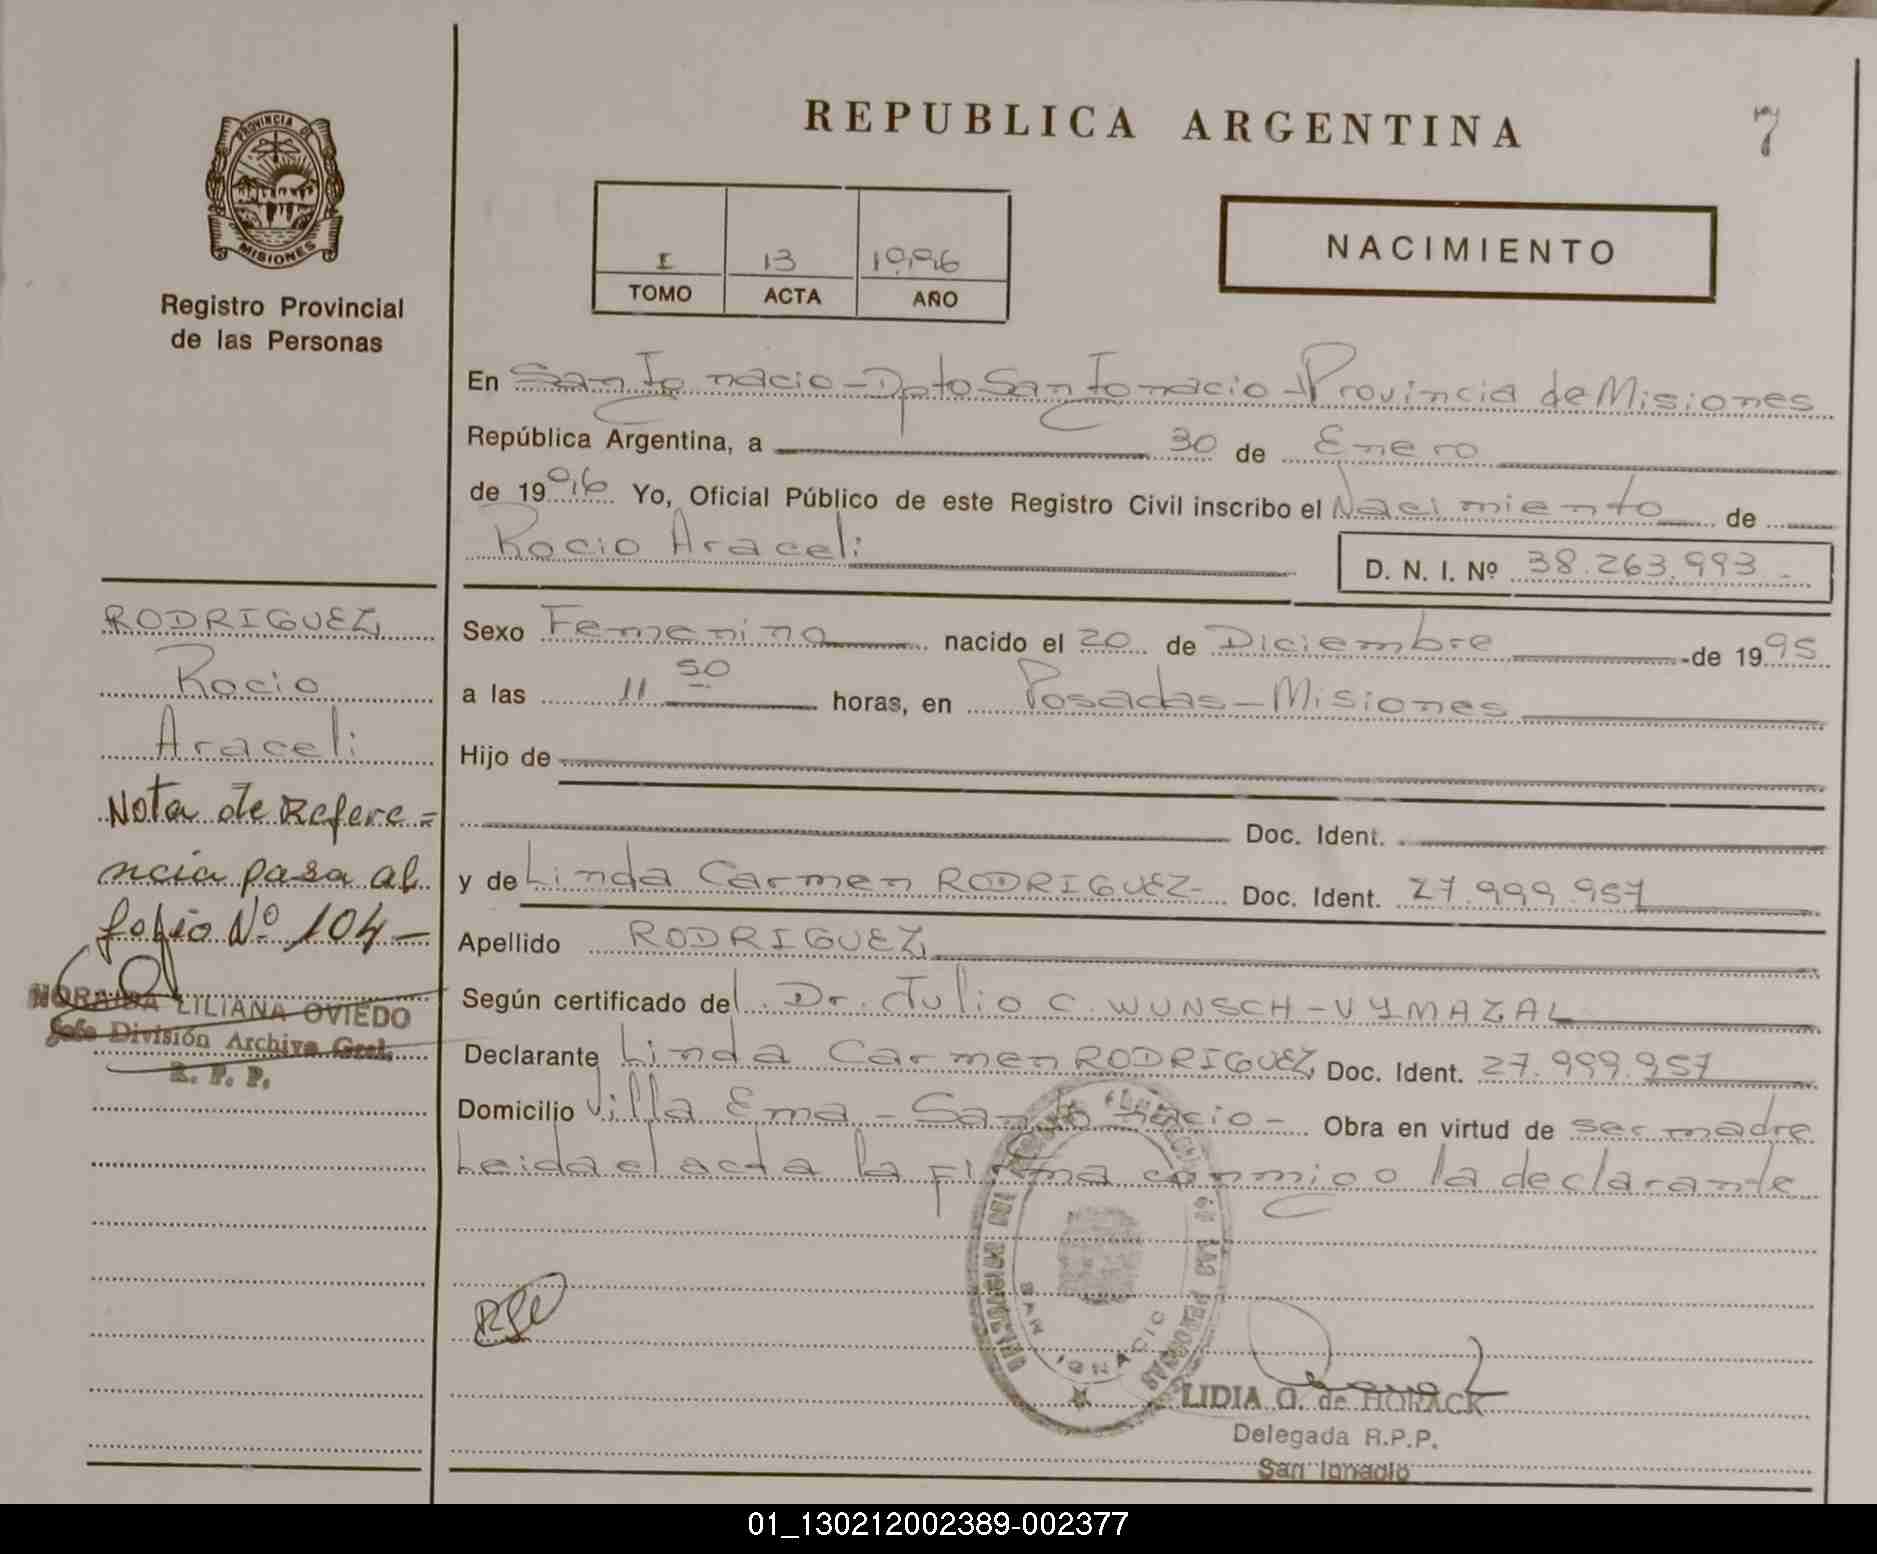 REPUBLICA ARGENTINA
7
PROVINCIA DE
MISIONES
Registro Provincial
de las Personas
I 13 1996
TOMO ACTA AÑO
NACIMIENTO
En San Ignacio - Dpto San Ignacio - Provincia de Misiones
República Argentina, a 30 de Enero
de 1996 Yo, Oficial Público de este Registro Civil inscribo el Nacimiento de
Rocio Araceli
D. N. I. Nº 38.263.993 -
RODRIGUEZ
Rocio
Araceli
Nota de Refere=
ncia pasa al
folio Nº 104 -
NORAIDA LILIANA OVIEDO
Jefe División Archivo Gral.
R. P. P.
Sexo Femenino nacido el 20 de Diciembre de 1995
a las 11 50 horas, en Posadas - Misiones
Hijo de
Doc. Ident.
y de Linda Carmen RODRIGUEZ - Doc. Ident. 27.999.957
Apellido RODRIGUEZ
Según certificado del Dr. Julio C. WUNSCH - VYMAZAL
Declarante Linda Carmen RODRIGUEZ Doc. Ident. 27.999.957
Domicilio Villa Ema - San Ignacio - Obra en virtud de ser madre
Leida el acta la firma conmigo la declarante
DE LAS PERSONAS
SAN IGNACIO
LIDIA G. de HORACK
Delegada R.P.P.
San Ignacio
01_130212002389-002377